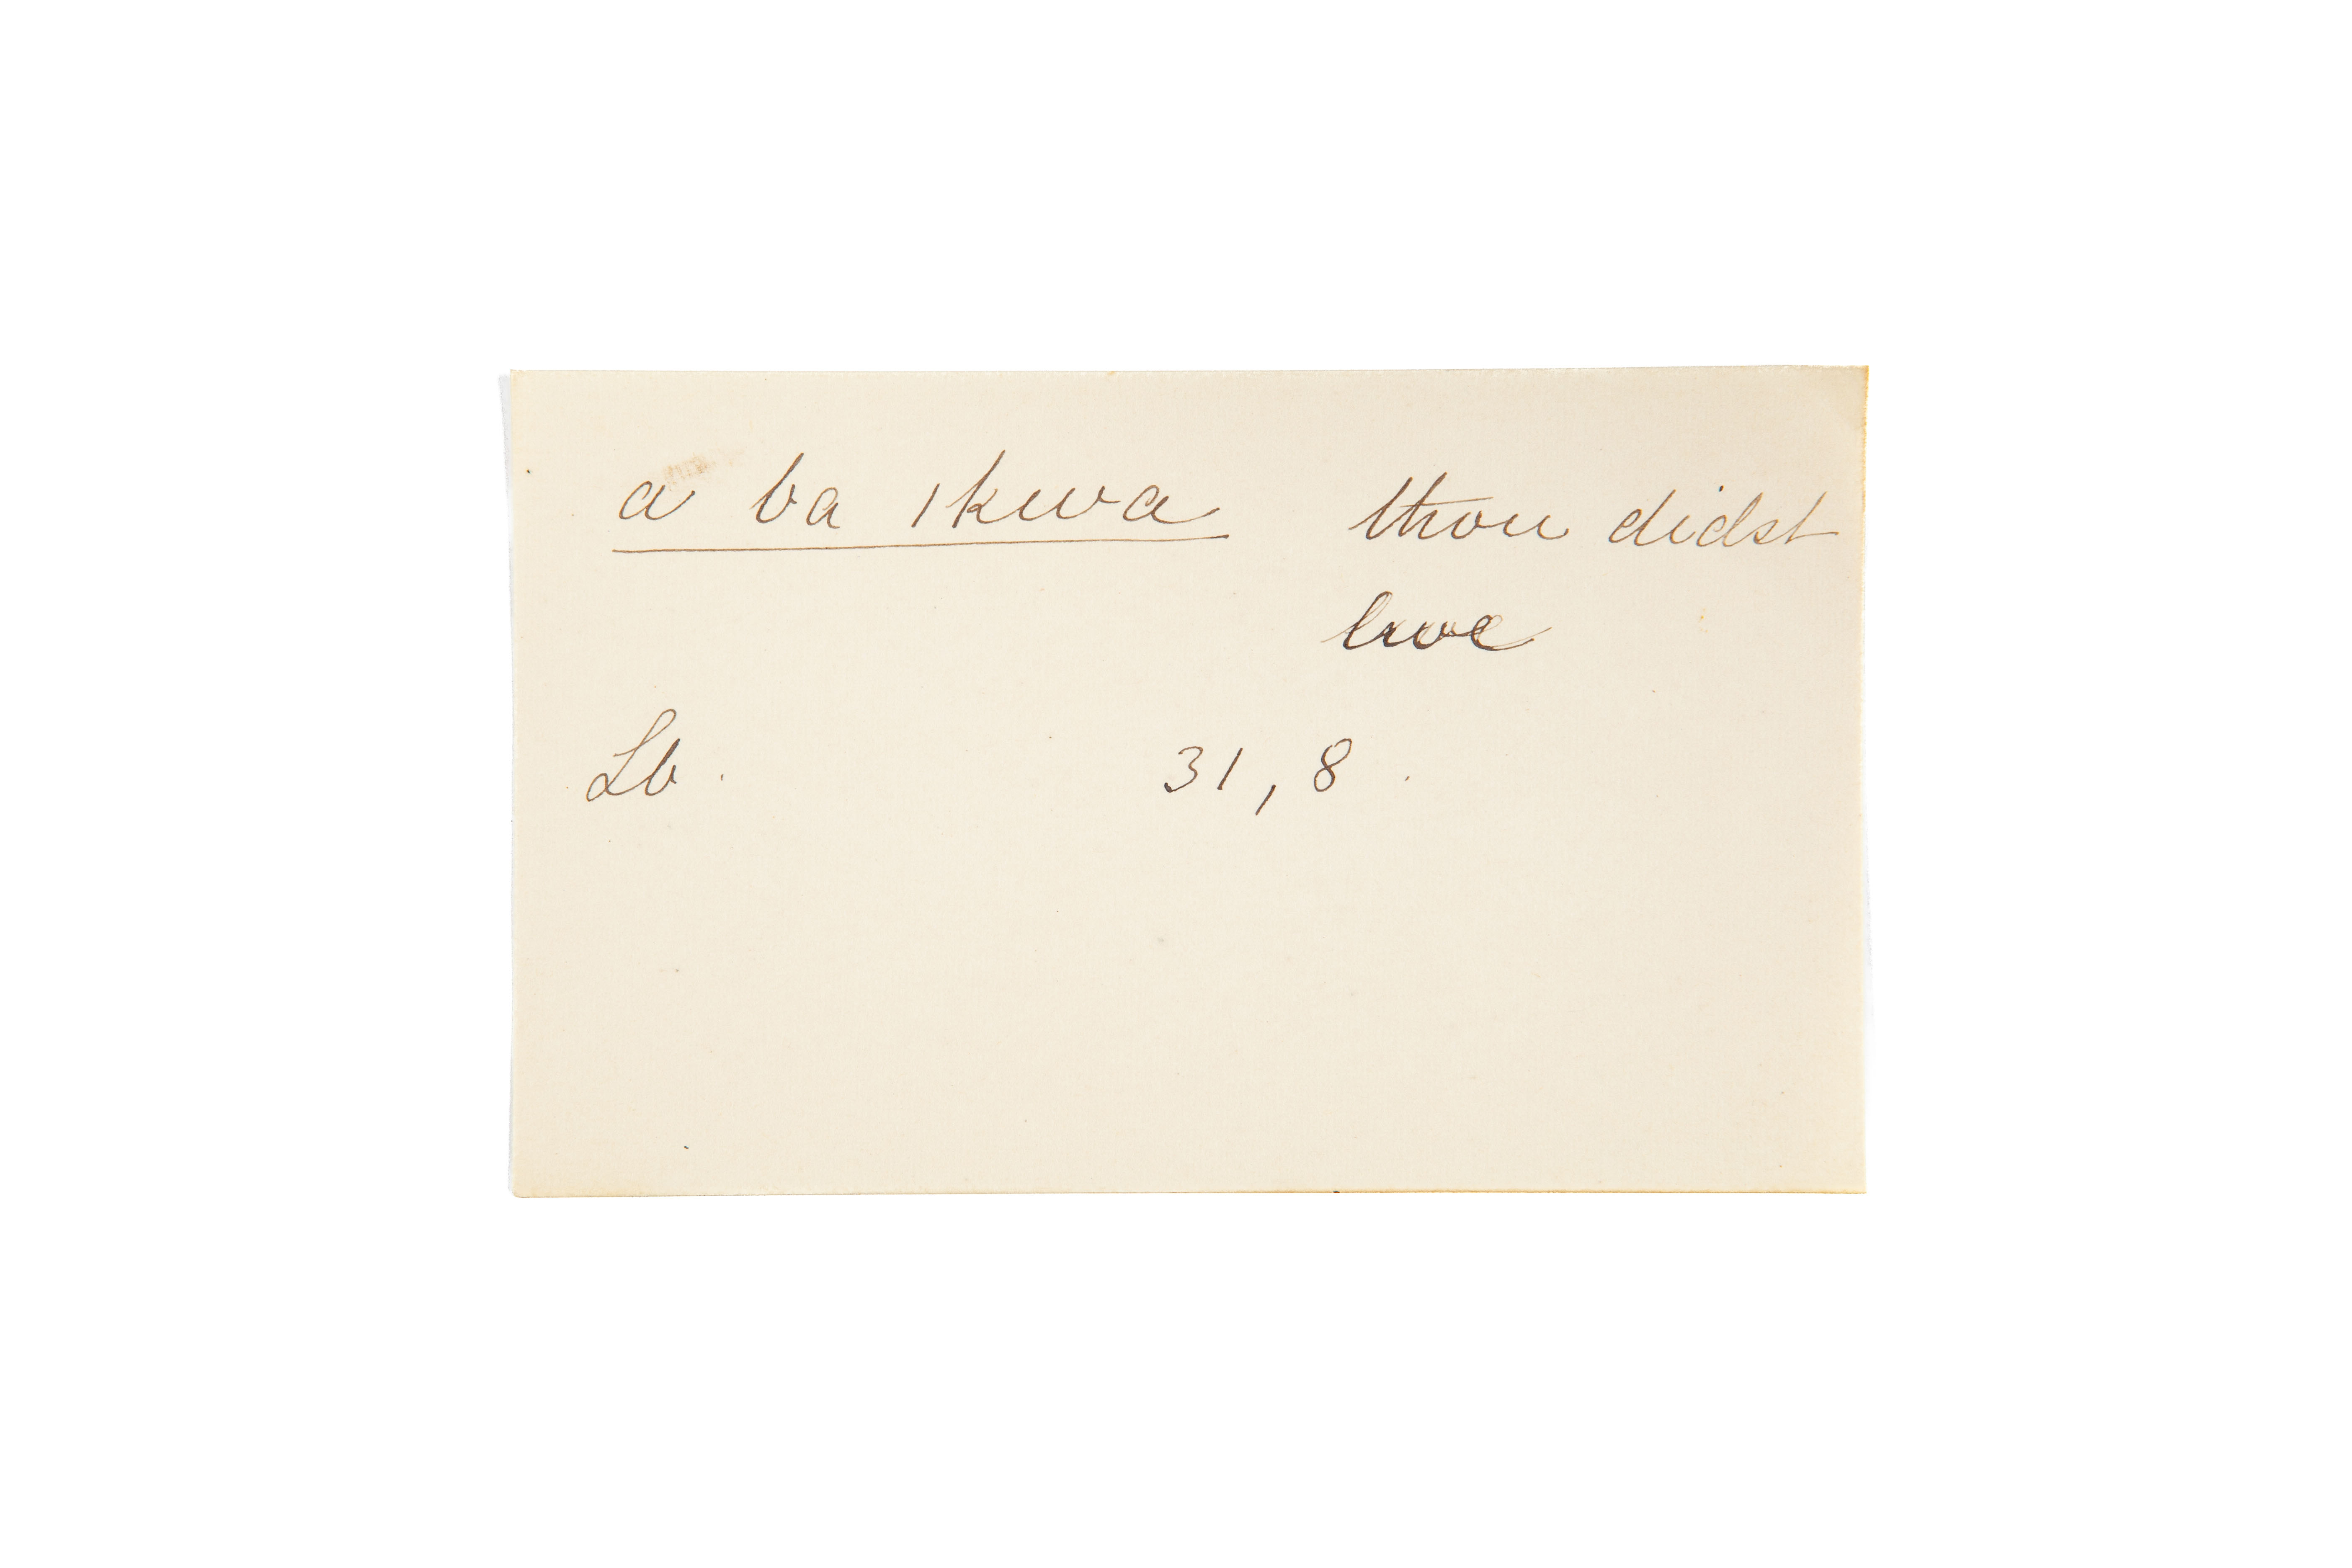 a ba ǀkwa thou didst
Lb. 31, 8.